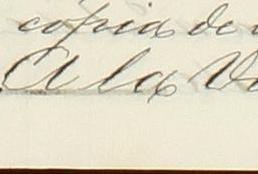 copia de
A la